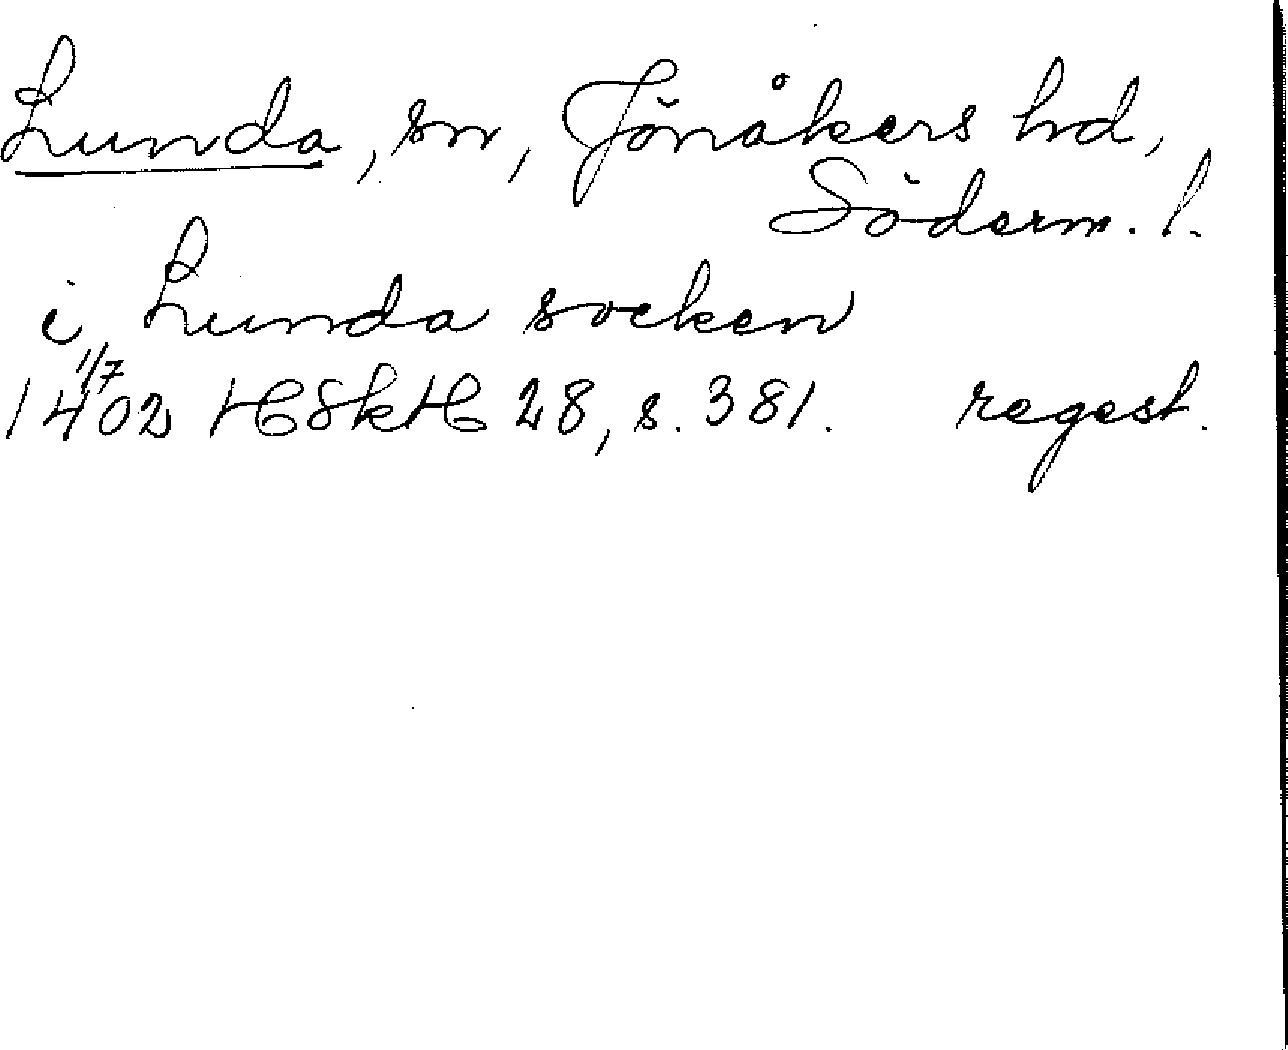 Lunda, sn, Jönåkers hd,
Söderm. l.
i Lunda socken
1402 1/7 HSkH 28, s. 381. regest.